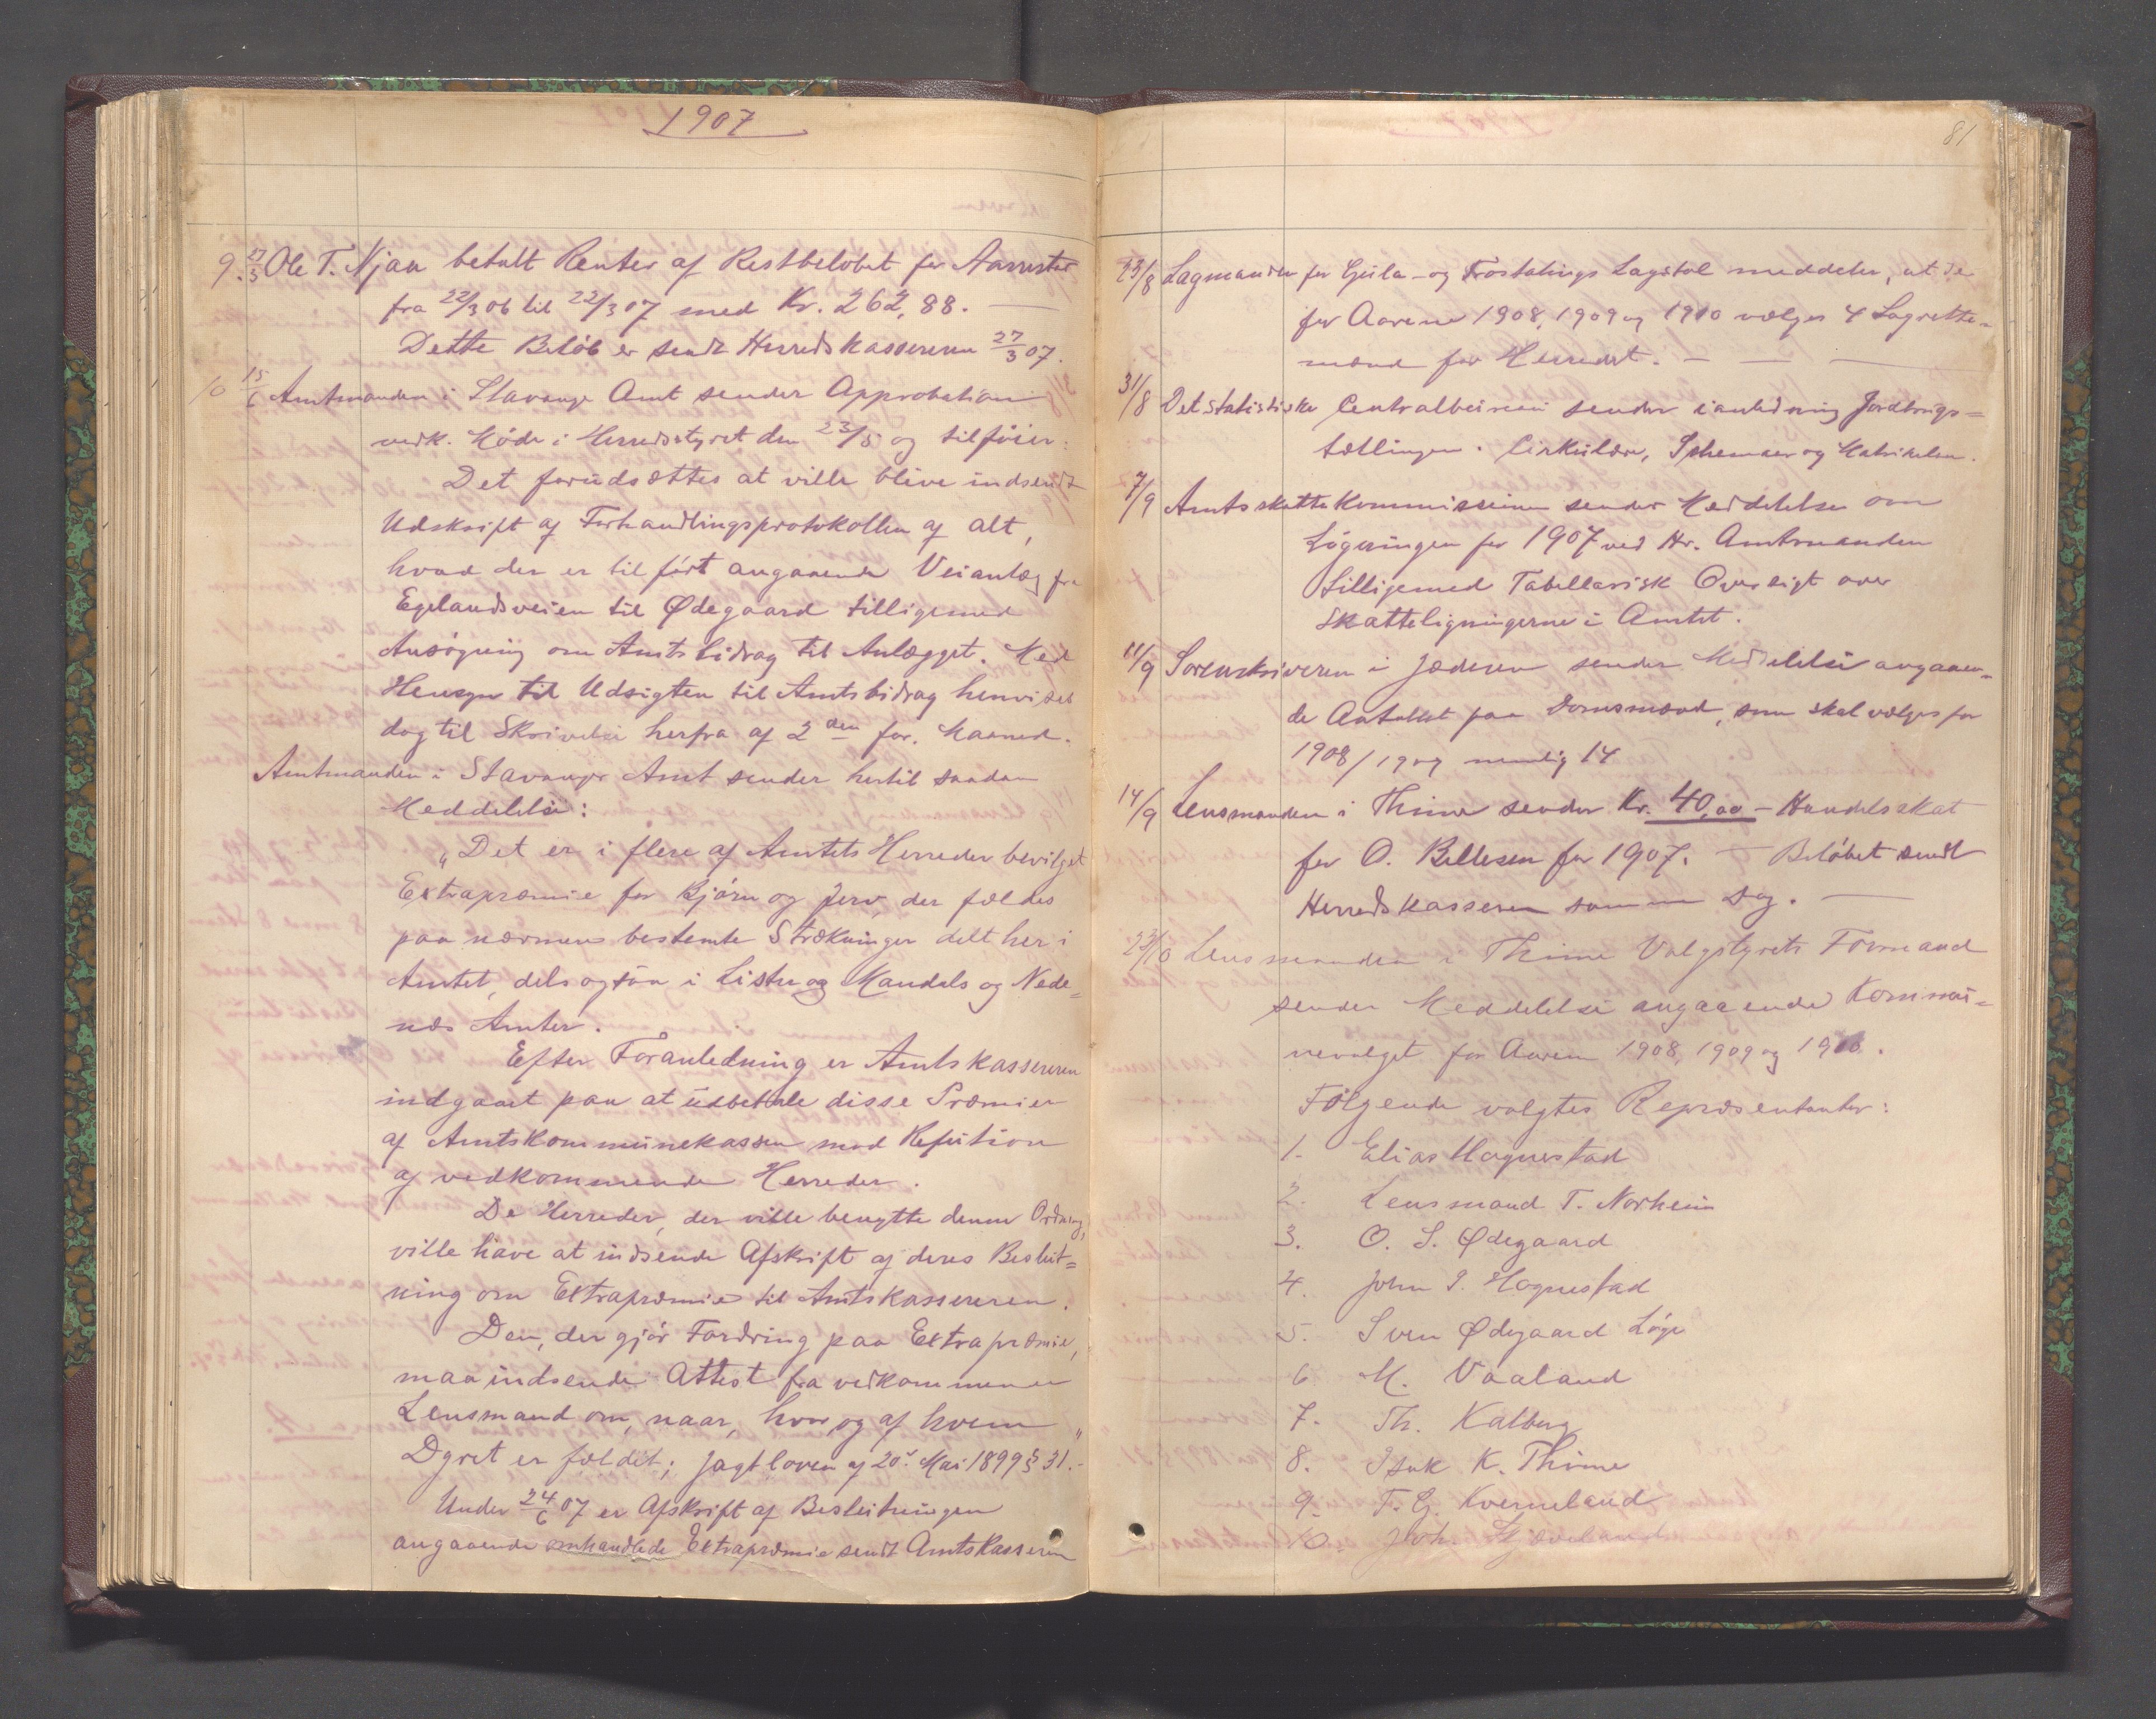 1907
9. 27/3 Ole T. Njaa betalt Renter af Restbeløbet for Aarrestad
fra 22/3 06 til 22/3 07 med Kr. 262,88. —
Dette Beløb er sendt Herredskassereren 27/3 07.
10 15/6 Amtmanden i Stavanger Amt sender Approbation
vedk. Møde i Herredsstyret den 23/5 og tilføier:
Det forudsættes at ville blive indsendt
Udskrift af Forhandlingsprotokollen af alt,
hvad der er tilført angaaende Veianlæg fra
Egelandsveien til Ødegaard tilligemed
Ansøgning om Amtsbidrag til Anlægget. Med
Hensyn til Udsigten til Amtsbidrag henvises
dog til Skrivelse herfra af 2den for. Maaned.
Amtmanden i Stavanger Amt sender hertil saadan
Meddelelse:
"Det er i flere af Amtets Herreder bevilget
Extrapræmie for Bjørn og Jerv, der fældes
paa nærmere bestemte Strækninger delt her i
Amtet, dels ogsaa i Lister og Mandals og Nede=
næs Amter.
Efter Foranledning er Amtskassereren
indgaaet paa at udbetale disse Præmier
af Amtskommunekassen mod Refution
af vedkommende Herreder.
De Herreder, der ville benytte denne Ordning,
ville have at indsende Afskrift af deres Beslut=
ning om Extrapræmie til Amtskassereren.
Den, der gjør Fordring paa Extrapræmie,
maa indsende Attest fra vedkommende
Lensmand om, naar, hvor og af hvem
Dyret er fældet; Jagtloven af 20de Mai 1899 § 31.-"
Under 24/6 07 er Afskrift af Beslutningen
angaaende omhandlede Extrapræmie sendt Amtskasseren
81
23/8 Lagmanden for Gula- og Frostatings Lagstol meddeler, at de
for Aarene 1908, 1909 og 1910 vælges 4 Lagrette=
mænd for Herredet. — — —
31/8 Det statistiske Centralbureau sender ianledning Jordbrugs=
tællingen: Cirkulære, Schemaer og Matrikelen.
7/9 Amtsskattekommissionen sender Meddelelse om
Ligningen for 1907 ved Hr. Amtmanden
tilligemed Tabellarisk Oversigt over
Skatteligningerne i Amtet.
11/9 Sorenskriveren i Jæderen sender Meddelelse angaaen=
de Antallet paa Domsmænd, som skal vælges for
1908/1909 nemlig 14
14/9 Lensmanden i Thime sender Kr. 40,00 - Handelsskat
for O. Bellesen for 1907. — Beløbet sendt
Herredskasseren samme Dag. —
23/10 Lensmanden i Thime Valgstyrets Formand
sender Meddelelse angaaende Kommu=
nevalget for Aarene 1908, 1909 og 1910.
Følgende valgtes Repræsentanter:
1. Elias Hognestad
2. Lensmand T. Norheim
3. O. S. Ødegaard
4. John I. Hognestad
5. Sven Ødegaard Lyge
6 M. Vaaland
7. Th. Kalberg
8. Isak K. Thime
9. T. G. Kverneland
10. Joh. Gjøveland